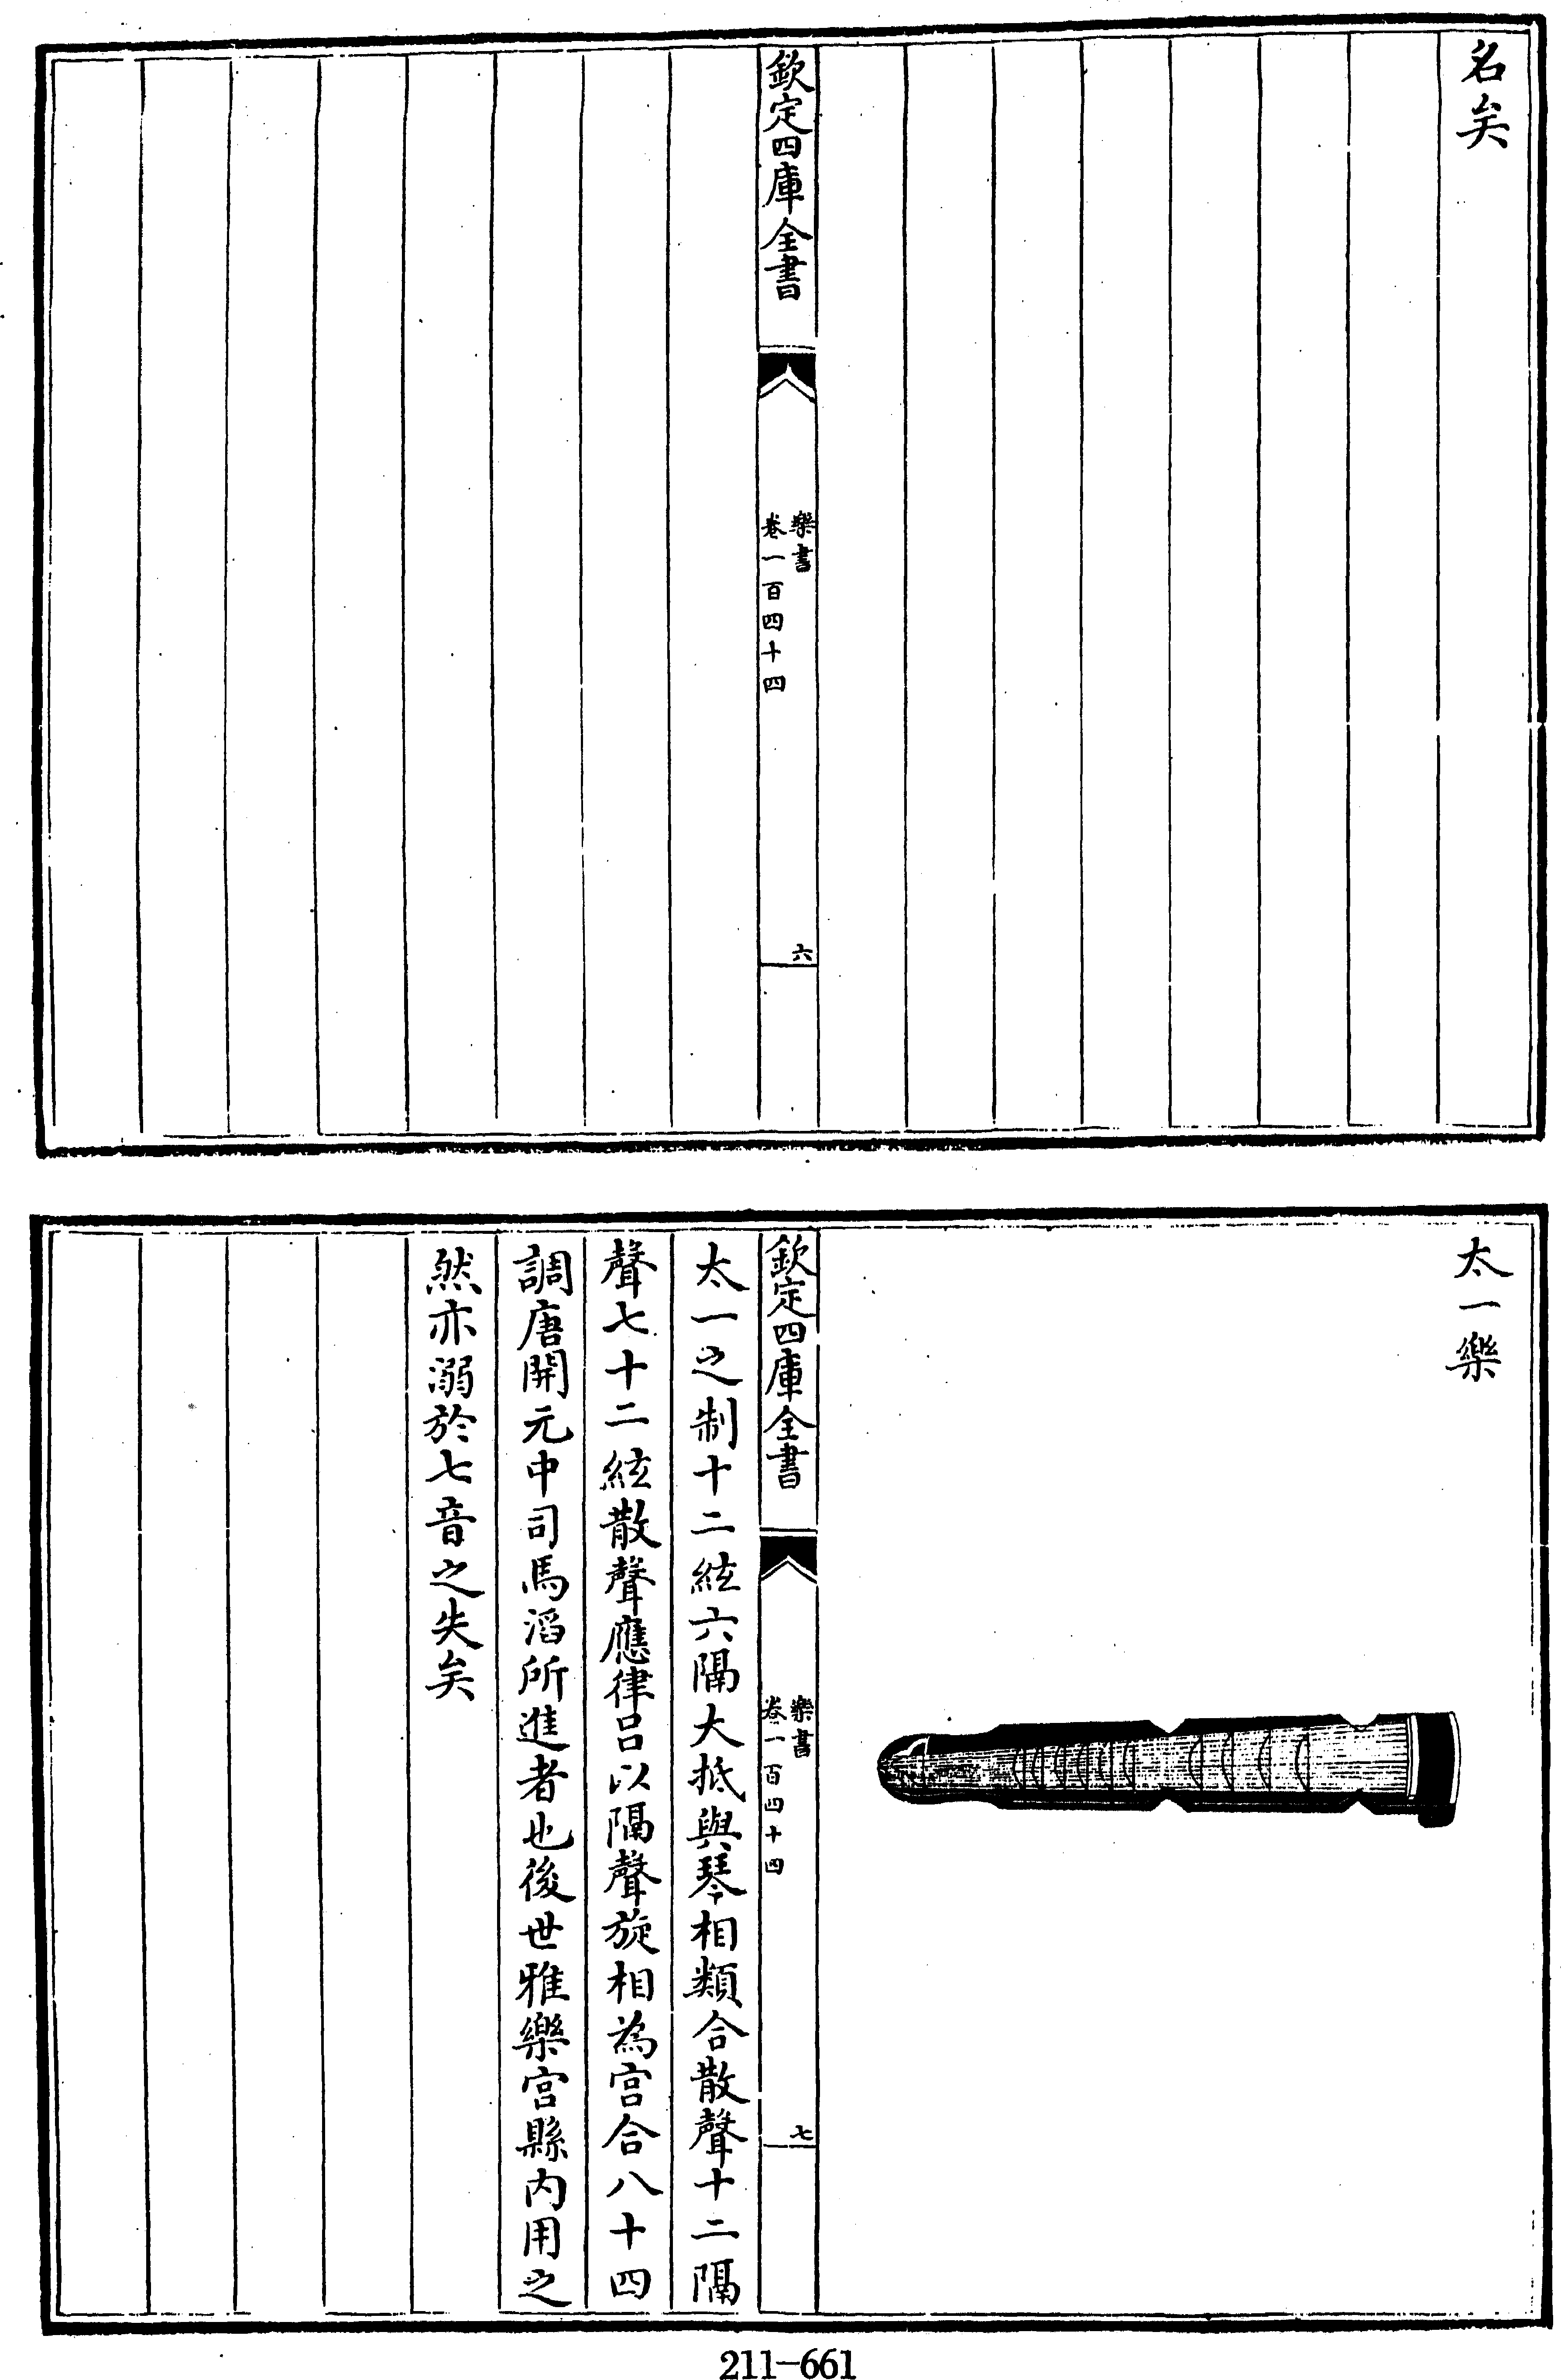 名矣
欽定四庫全書
樂書
卷一百四十四
六
太一樂
欽定四庫全書
樂書
卷一百四十四
七
太一之制十二絃六隔大抵與琴相類合散聲十二隔
聲七十二絃散聲應律呂以隔聲旋相為宮合八十四
調唐開元中司馬滔所進者也後世雅樂宮縣内用之
然亦溺於七音之失矣
211-661